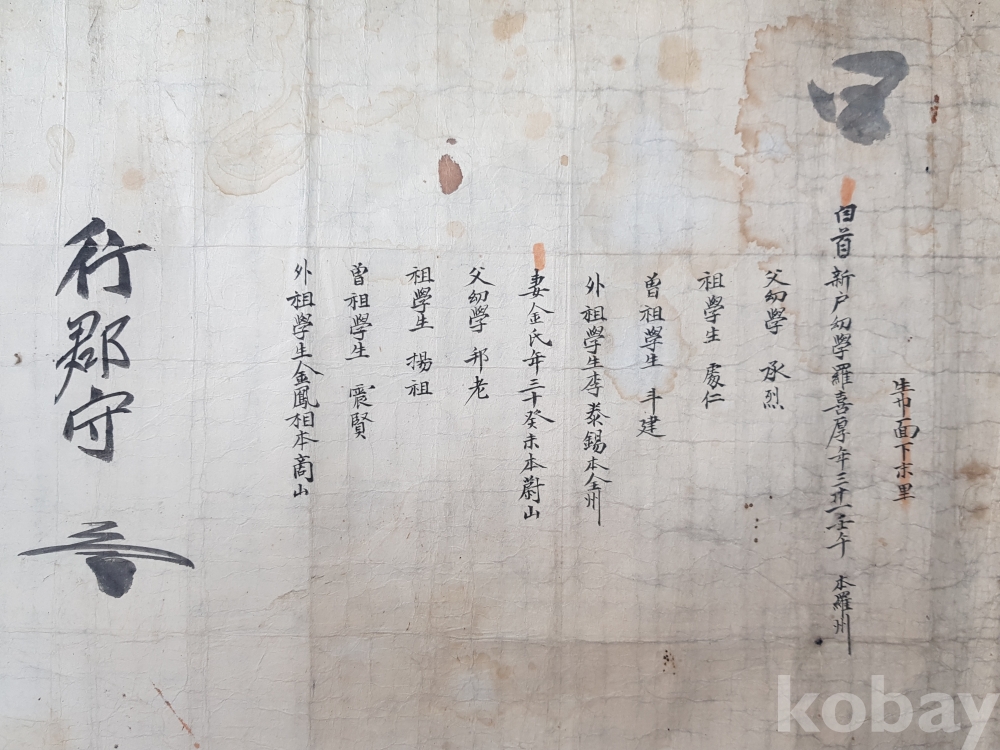 口
面下宗里
自首 新戶幼學羅喜厚年三十一壬午 本羅州
父幼學 承烈
祖學生 處仁
曾祖學生 斗建
外祖學生李泰錫本全州
妻金氏年三十癸未本蔚山
父幼學 邦老
祖學生 揚祖
曾祖學生 震賢
外祖學生金鳳相本商山
行郡守
kobay